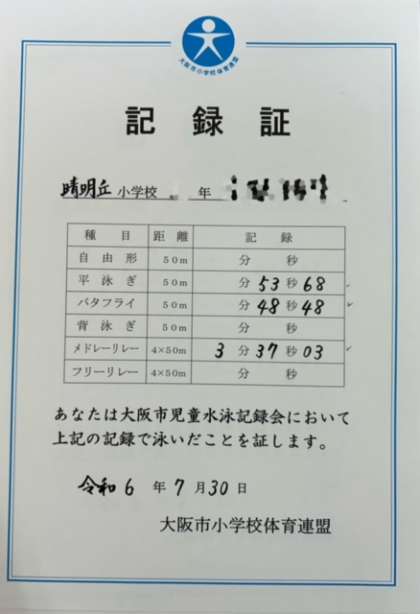 大阪市小学校体育連盟
記録証
晴明丘 小学校 年
種目 距離 記録
自由形 50m 分 秒
平泳ぎ 50m 分 53 秒 68
バタフライ 50m 分 48 秒 48
背泳ぎ 50m 分 秒
メドレーリレー 4×50m 3 分 37 秒 03
フリーリレー 4×50m 分 秒
あなたは大阪市児童水泳記録会において
上記の記録で泳いだことを証します。
令和 6 年 7 月 30 日
大阪市小学校体育連盟